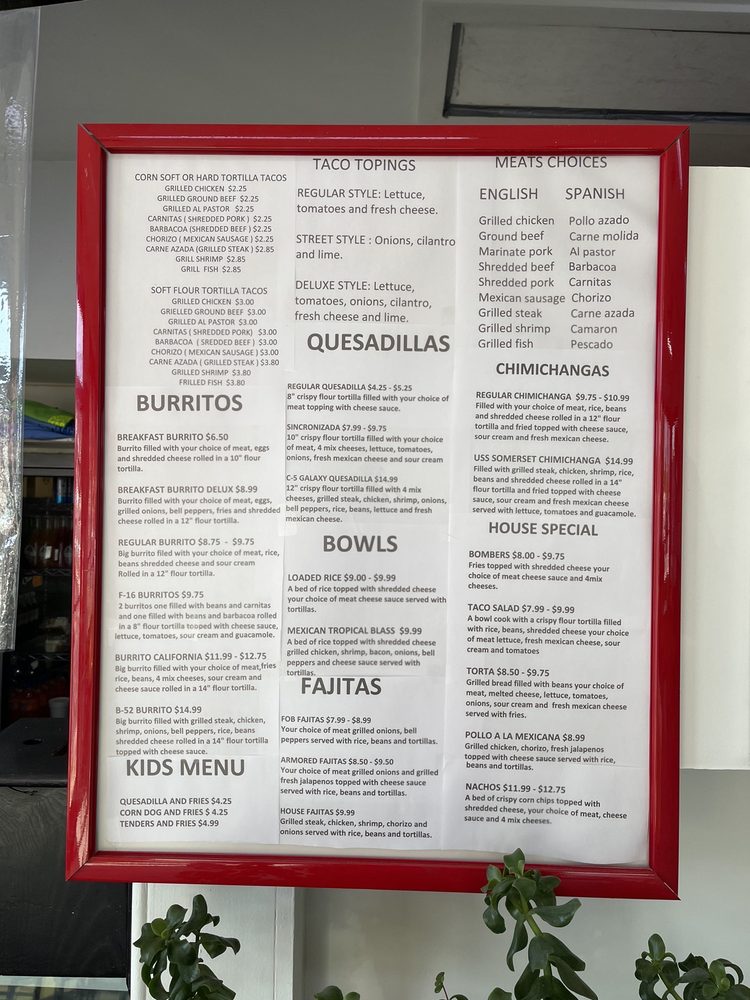 CORN SOFT OR HARD TORTILLA TACOS
GRILLED CHICKEN $2.25
GRILLED GROUND BEEF $2.25
GRILLED AL PASTOR $2.25
CARNITAS ( SHREDDED PORK ) $2.25
BARBACOA (SHREDDED BEEF ) $2.25
CHORIZO ( MEXICAN SAUSAGE ) $2.25
CARNE AZADA (GRILLED STEAK ) $2.85
GRILL SHRIMP $2.85
GRILL FISH $2.85
SOFT FLOUR TORTILLA TACOS
GRILLED CHICKEN $3.00
GRIELLED GROUND BEEF $3.00
GRILLED AL PASTOR $3.00
CARNITAS ( SHREDDED PORK) $3.00
BARBACOA ( SREDDED BEEF ) $3.00
CHORIZO ( MEXICAN SAUSAGE ) $3.00
CARNE AZADA ( GRILLED STEAK ) $3.80
GRILLED SHRIMP $3.80
FRILLED FISH $3.80
BURRITOS
BREAKFAST BURRITO $6.50
Burrito filled with your choice of meat, eggs
and shredded cheese rolled in a 10" flour
tortilla.
BREAKFAST BURRITO DELUX $8.99
Burrito filled with your choice of meat, eggs,
grilled onions, bell peppers, fries and shredded
cheese rolled in a 12" flour tortilla.
REGULAR BURRITO $8.75 - $9.75
Big burrito filled with your choice of meat, rice,
beans shredded cheese and sour cream
Rolled in a 12" flour tortilla.
F-16 BURRITOS $9.75
2 burritos one filled with beans and carnitas
and one filled with beans and barbacoa rolled
in a 8" flour tortilla topped with cheese sauce,
lettuce, tomatoes, sour cream and guacamole.
BURRITO CALIFORNIA $11.99 - $12.75
Big burrito filled with your choice of meat,fries
rice, beans, 4 mix cheeses, sour cream and
cheese sauce rolled in a 14" flour tortilla.
B-52 BURRITO $14.99
Big burrito filled with grilled steak, chicken,
shrimp, onions, bell peppers, rice, beans
shredded cheese rolled in a 14" flour tortilla
topped with cheese sauce.
KIDS MENU
QUESADILLA AND FRIES $4.25
CORN DOG AND FRIES $ 4.25
TENDERS AND FRIES $4.99
TACO TOPINGS
REGULAR STYLE: Lettuce,
tomatoes and fresh cheese.
STREET STYLE : Onions, cilantro
and lime.
DELUXE STYLE: Lettuce,
tomatoes, onions, cilantro,
fresh cheese and lime.
QUESADILLAS
REGULAR QUESADILLA $4.25 - $5.25
8" crispy flour tortilla filled with your choice of
meat topping with cheese sauce.
SINCRONIZADA $7.99 - $9.75
10" crispy flour tortilla filled with your choice
of meat, 4 mix cheeses, lettuce, tomatoes,
onions, fresh mexican cheese and sour cream
C-5 GALAXY QUESADILLA $14.99
12" crispy flour tortilla filled with 4 mix
cheeses, grilled steak, chicken, shrimp, onions,
bell peppers, rice, beans, lettuce and fresh
mexican cheese.
BOWLS
LOADED RICE $9.00 - $9.99
A bed of rice topped with shredded cheese
your choice of meat cheese sauce served with
tortillas.
MEXICAN TROPICAL BLASS $9.99
A bed of rice topped with shredded cheese
grilled chicken, shrimp, bacon, onions, bell
peppers and cheese sauce served with
tortillas.
FAJITAS
FOB FAJITAS $7.99 - $8.99
Your choice of meat grilled onions, bell
peppers served with rice, beans and tortillas.
ARMORED FAJITAS $8.50 - $9.50
Your choice of meat grilled onions and grilled
fresh jalapenos topped with cheese sauce
served with rice, beans and tortillas.
HOUSE FAJITAS $9.99
Grilled steak, chicken, shrimp, chorizo and
onions served with rice, beans and tortillas.
MEATS CHOICES
ENGLISH SPANISH
Grilled chicken Pollo azado
Ground beef Carne molida
Marinate pork Al pastor
Shredded beef Barbacoa
Shredded pork Carnitas
Mexican sausage Chorizo
Grilled steak Carne azada
Grilled shrimp Camaron
Grilled fish Pescado
CHIMICHANGAS
REGULAR CHIMICHANGA $9.75 - $10.99
Filled with your choice of meat, rice, beans
and shredded cheese rolled in a 12" flour
tortilla and fried topped with cheese sauce,
sour cream and fresh mexican cheese.
USS SOMERSET CHIMICHANGA $14.99
Filled with grilled steak, chicken, shrimp, rice,
beans and shredded cheese rolled in a 14"
flour tortilla and fried topped with cheese
sauce, sour cream and fresh mexican cheese
served with lettuce, tomatoes and guacamole.
HOUSE SPECIAL
BOMBERS $8.00 - $9.75
Fries topped with shredded cheese your
choice of meat cheese sauce and 4mix
cheeses.
TACO SALAD $7.99 - $9.99
A bowl cook with a crispy flour tortilla filled
with rice, beans, shredded cheese your choice
of meat lettuce, fresh mexican cheese, sour
cream and tomatoes
TORTA $8.50 - $9.75
Grilled bread filled with beans your choice of
meat, melted cheese, lettuce, tomatoes,
onions, sour cream and fresh mexican cheese
served with fries.
POLLO A LA MEXICANA $8.99
Grilled chicken, chorizo, fresh jalapenos
topped with cheese sauce served with rice,
beans and tortillas.
NACHOS $11.99 - $12.75
A bed of crispy corn chips topped with
shredded cheese, your choice of meat, cheese
sauce and 4 mix cheeses.